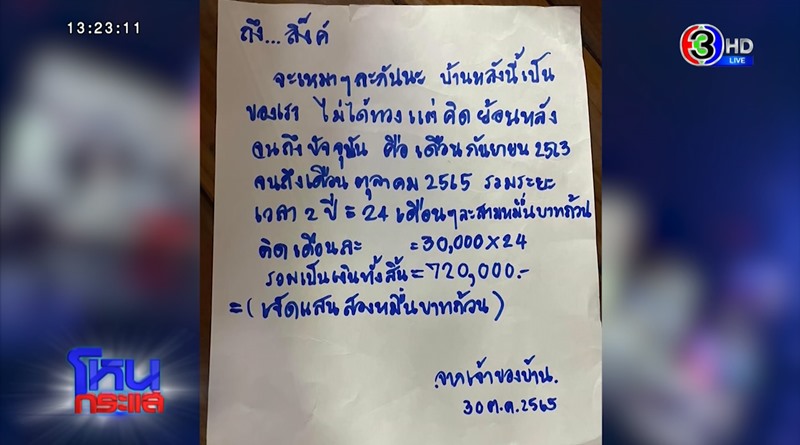 13:23:11
3 HD
LIVE
ถึง... สิงค์
จะเหมาๆ ละกันนะ บ้านหลังนี้เป็น
ของเรา ไม่ได้ทวง แต่ คิด ย้อนหลัง
จนถึง ปัจจุบัน คือ เดือน กันยายน 2563
จนถึงเดือน ตุลาคม 2565 รวมระยะ
เวลา 2 ปี = 24 เดือนๆ ละสามหมื่นบาทถ้วน
คิดเดือนละ = 30,000 X 24
รวมเป็นเงินทั้งสิ้น = 720,000.-
= ( เจ็ดแสนสองหมื่นบาทถ้วน )
จากเจ้าของบ้าน.
30 ต.ค. 2565
โหนกระแส